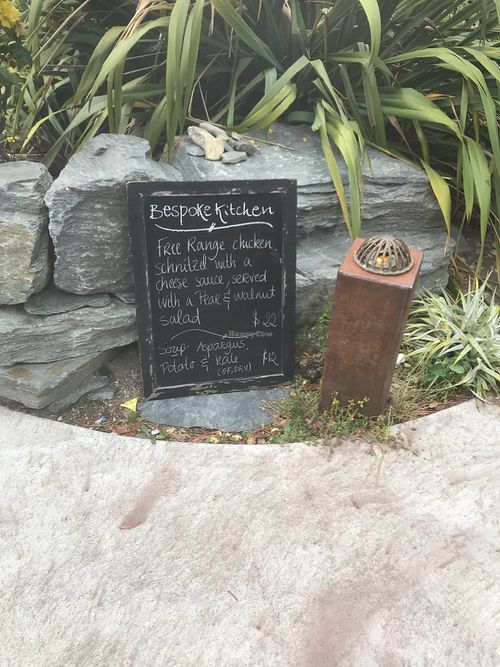 Bespoke Kitchen
Free Range chicken
schnitzel with a
cheese sauce, served
with a Pear & walnut
salad $22
HappyCow
Soup: Asparagus,
Potato & Kale $12
(GF, DF, V)